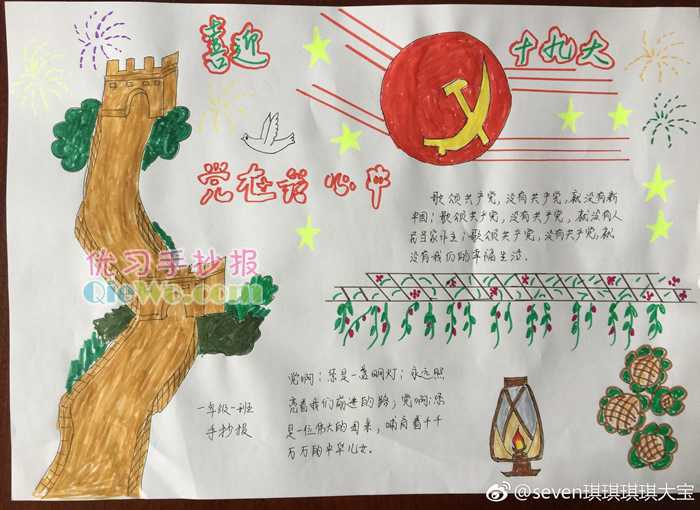 喜迎
十九大
党在我心中
歌颂共产党,没有共产党,就没有新
中国;歌颂共产党,没有共产党,就没有人
民当家作主;歌颂共产党,没有共产党,就
没有我们的幸福生活.
优习手抄报
QieWo.com
党啊;您是一盏明灯;永远照
亮着我们前进的路;党啊:您
是一位伟大的母亲,哺育着千千
万万的中华儿女.
一年级一班
手抄报
@seven琪琪琪琪大宝